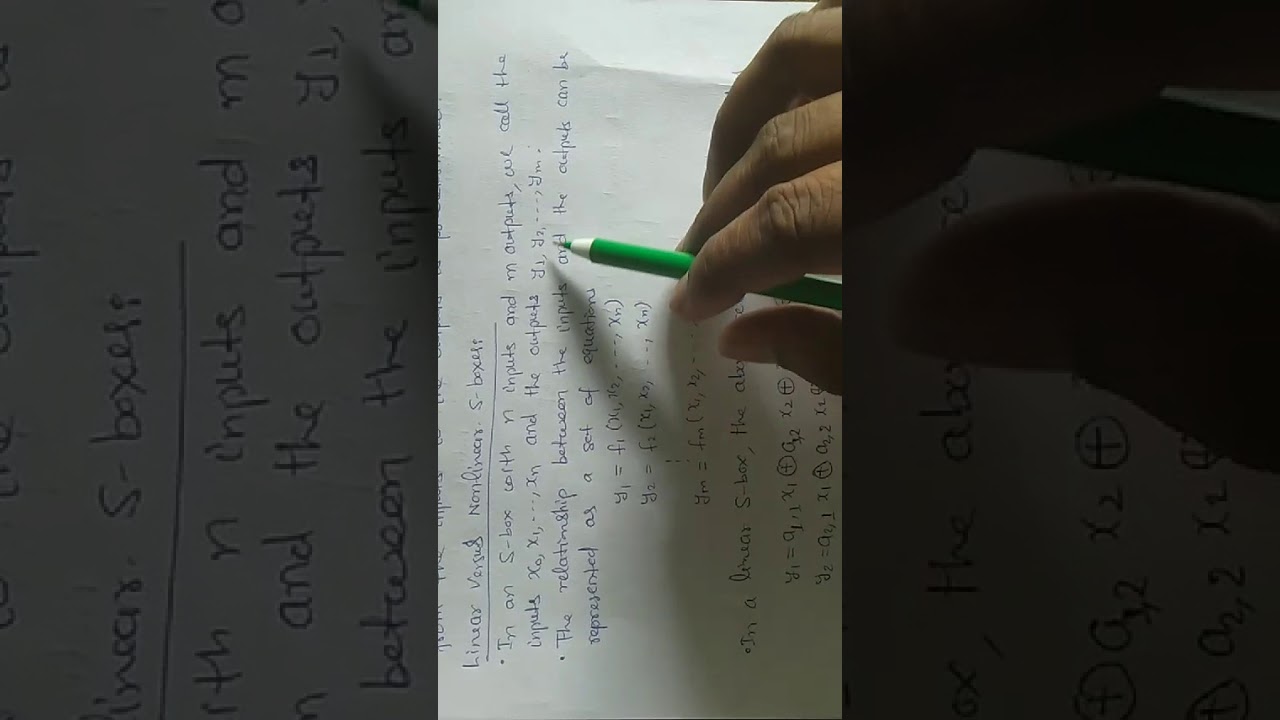 Linear Versus Nonlinear S-boxes:
• In an S-box with n inputs and m outputs, we call the
inputs x₀, x₁, ..., xₙ and the outputs y₁, y₂, ..., yₘ.
• The relationship between the inputs and the outputs can be
represented as a set of equations
y₁ = f₁(x₁, x₂, ..., xₙ)
y₂ = f₂(x₁, x₂, ..., xₙ)
⋮
yₘ = fₘ(x₁, x₂, ...
• In a linear S-box, the above
y₁ = a₁,₁ x₁ ⊕ a₁,₂ x₂ ⊕
y₂ = a₂,₁ x₁ ⊕ a₂,₂ x₂ ⊕